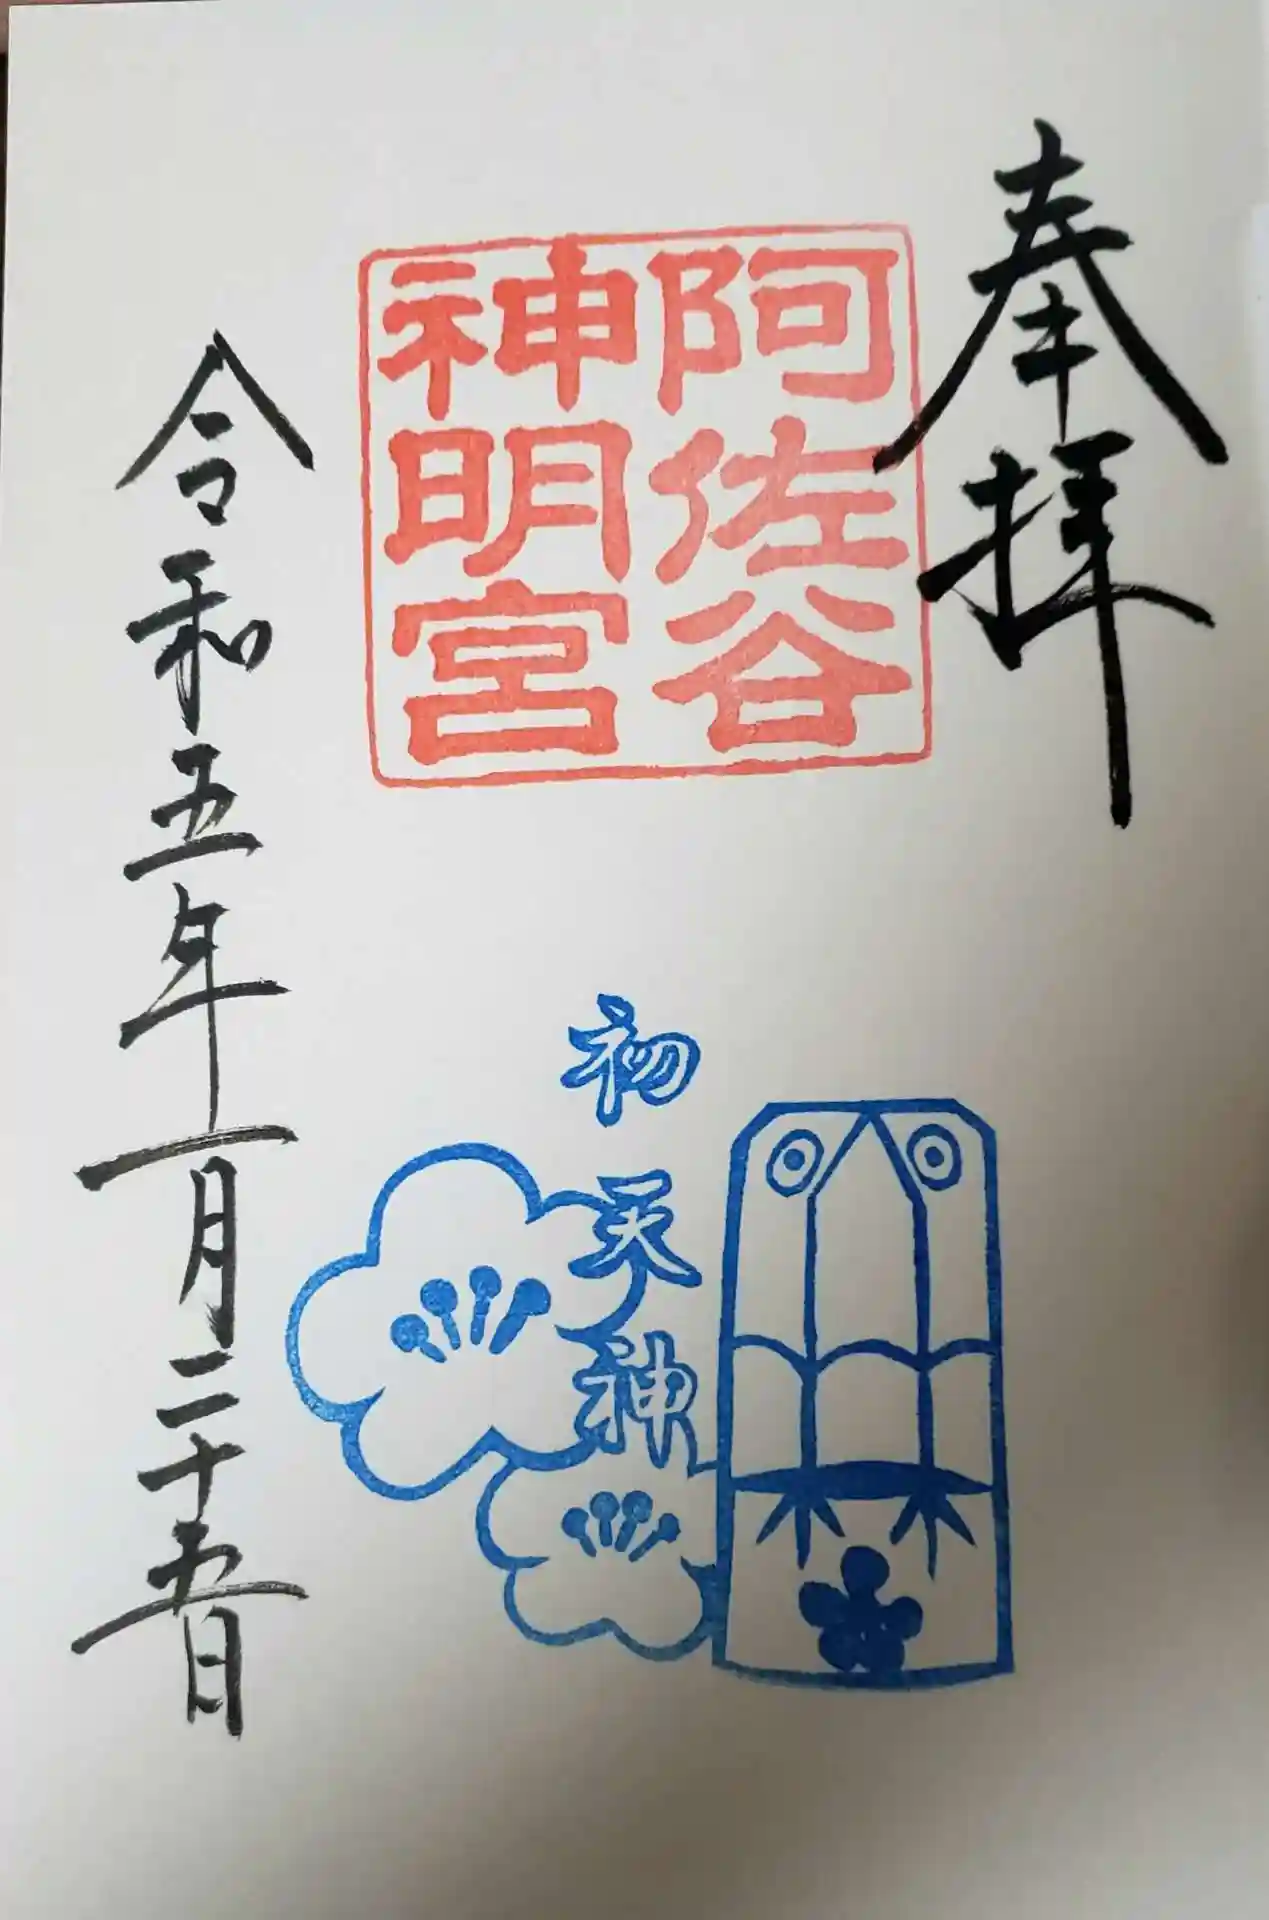 奉拝
阿佐谷
神明宮
初天神
令和五年一月二十五日